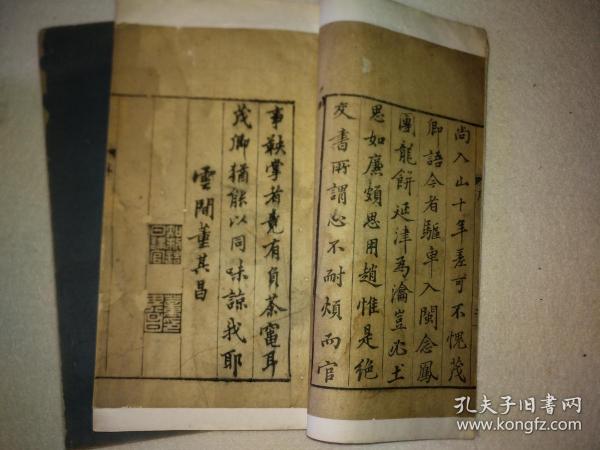 尚入山十年差可不愧茂
卿語今者驅車入閩念鳳
團龍餅延津為瀹豈必土
思如廉頗思用趙惟是絕
交書所謂心不耐煩而官
事鞅掌者竟有負茶竈耳
茂卿猶能以同味諒我耶
雲間董其昌
孔夫子旧书网
www.kongfz.com